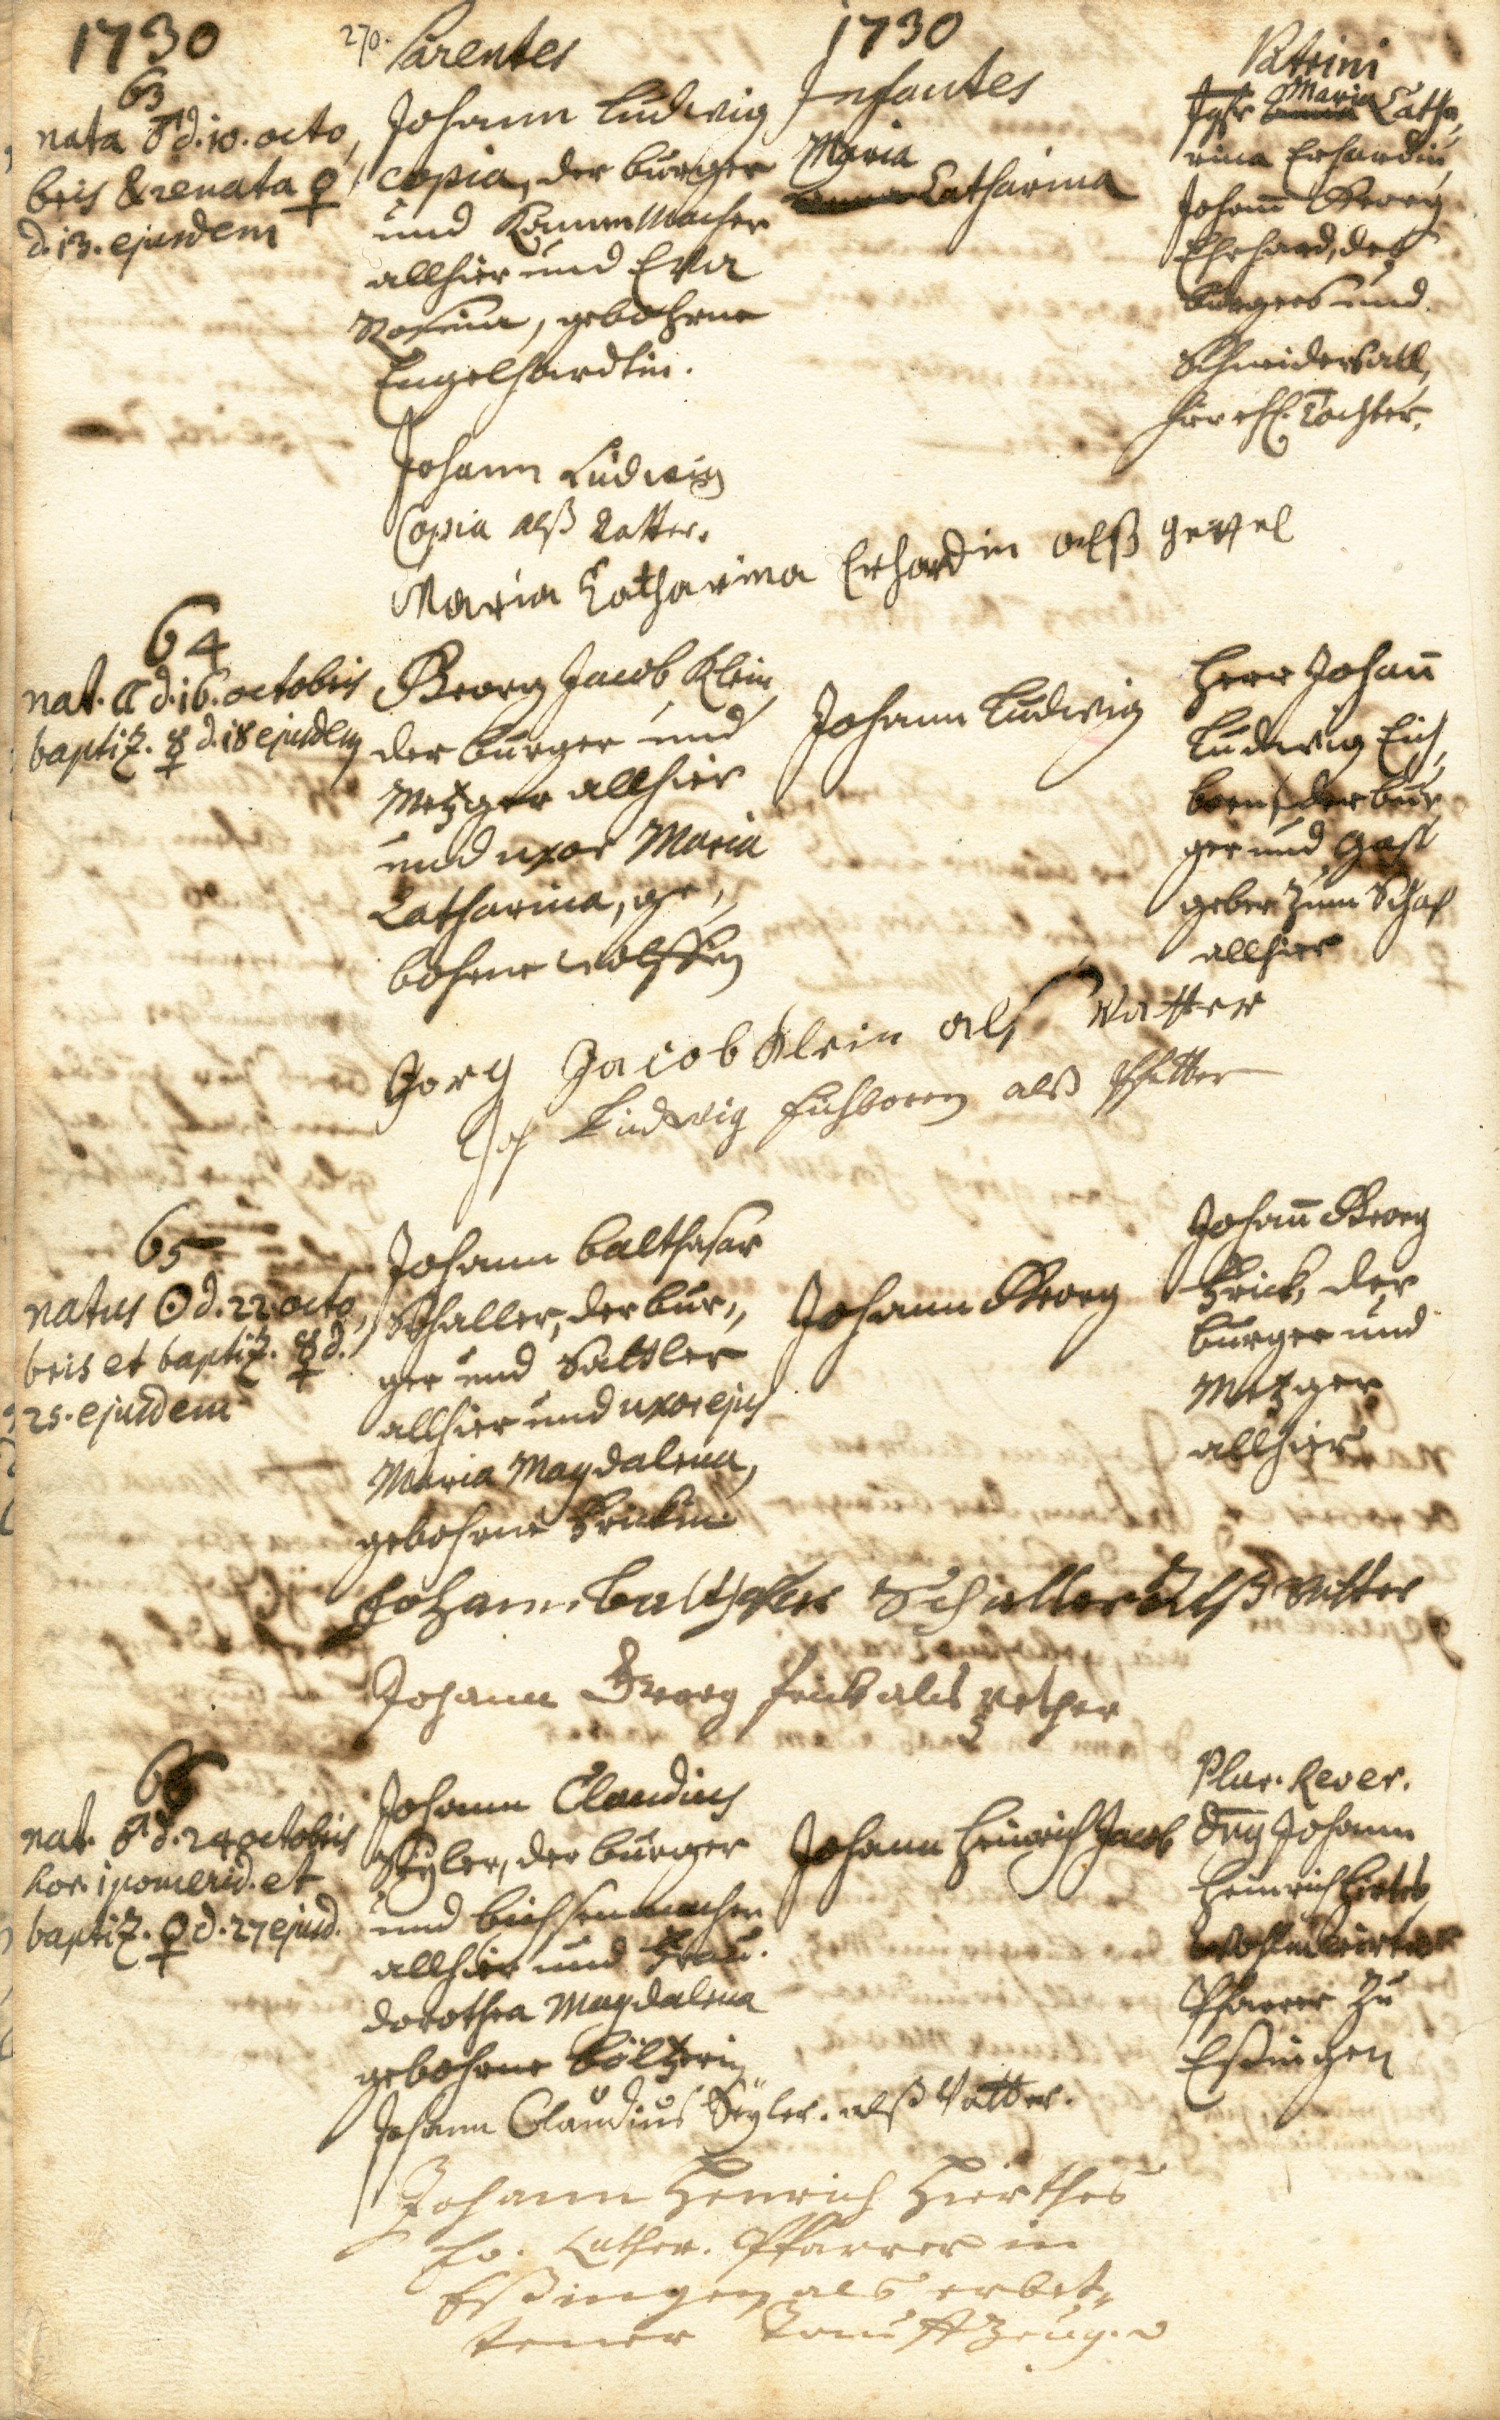 1730
270.
Parentes
1730
Infantes
Patrini
63
nata ♂ d. 10. octo,
bris & renata ♀
d. 13. ejusdem
Johann Ludwig
Copia, der burger
und Kammmacher
allhier und Eva
Rosina, gebohrne
Engelhardtin.
Maria
Catharina
Jgfr Maria Catha,
rina Erhardin,
Johann Georg
Ehrhard, des
burgers und
Schneiders all,
hier ehl. Tochter.
Johann Ludwig
Copia alß Vatter.
Maria Catharina Erhardin alß getel
64
nat. ☾ d. 16. octobris
baptiz. ☿ d. 18 ejusdem
Georg Jacob Klein,
der burger und
Metzger allhier
und uxor Maria
Catharina, ge,,
bohrne Wolffin
Johann Ludwig
Herr Johann
Ludwig Eich,
born, der bur,
ger und Gast
geber zum Schaf
allhier
Gorg Jacob Klein als Vatter
Joh Ludwig Eichborn alß Pfetter
65
natus ☉ d. 22 octo,
bris et baptiz. ☿ d.
25. ejusdem
Johann balthasar
Schaller, der bur,,
ger und Sattler
allhier und uxor ejus
Maria Magdalena,
gebohrne Frickin
Johann Georg
Johann Georg
Frick, der
burger und
Metzger
allhier
Johann balthasar Schaller Alß Vatter
Johann Georg frick als petther
66
nat. ♂ d. 24 octobris
hor. 1 pomerid. et
baptiz. ♀ d. 27 ejusd.
Johann Claudius
Seyler, der burger
und büchsenmacher
allhier und Frau
dorothea Magdalena
gebohrne böltzerin
Johann Heinrich Jacob
Plur. Rever.
Dng Johann
Heinrich Hirtes
Wohlmeritirter
Pfarrer zu
Eßingen
Johann Claudius Seyler. alß Vatter.
Johann Henrich Hierthes
Ev. Luther. Pfarrer in
Eßingen als erbet,,
tener Tauffzeug.